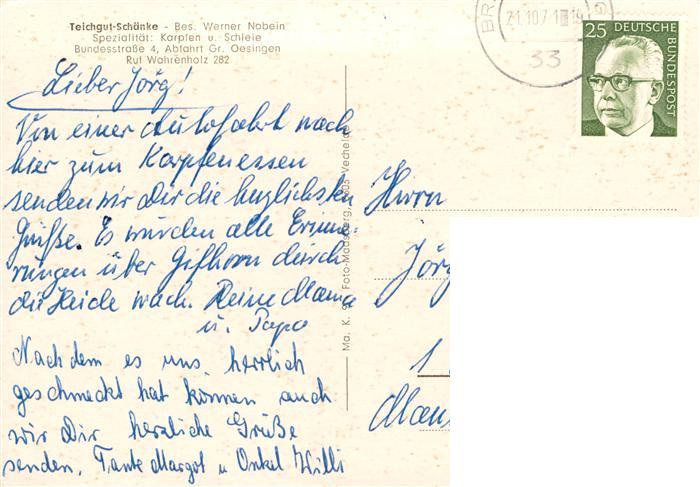 Teichgut-Schänke - Bes. Werner Nabein
Spezialität: Karpfen u. Schleie
Bundesstraße 4, Abfahrt Gr. Oesingen
Ruf Wahrenholz 282
Lieber Jörg!
Von einer Autofahrt nach
hier zum Karpfenessen
senden wir Dir die herzlichsten
Grüße. Es wurden alle Erinne-
rungen über Gifhorn durch
die Heide wach. Deine Mama
u. Papa
Nachdem es uns herrlich
geschmeckt hat können auch
wir Dir herzliche Grüße
senden. Tante Margot u Onkel Willi
Ma. K. Foto- Vechelde
BR
21.10.71
33
25 DEUTSCHE
BUNDESPOST
Herrn
Jörg
1